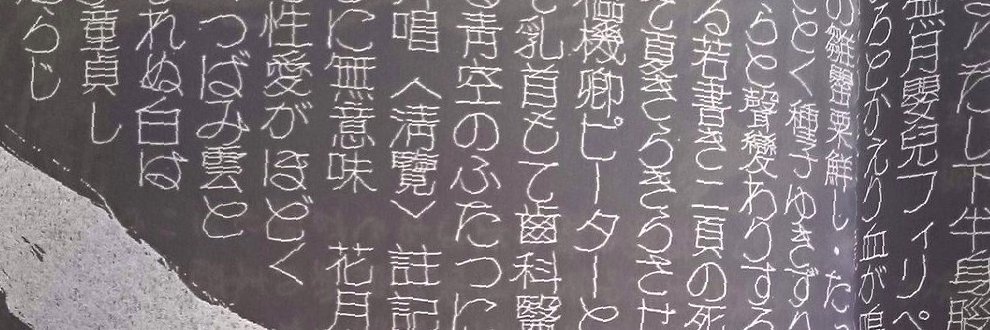 だし下半身脳
無月嬰兒フィリペ
ろとしかえり血が
の雛罌粟鮮し・た
ごとく種子ゆきずれ
らと聲變わりする
る若書き二頁の死
て夏きらうきらうさせ
個機卿ピーターと
乳首もて齒科醫
る青空のふたつに
唱〈清覽〉註記
に無意味 花月
性愛がほどく
つばみ雲と
れぬ白ば
童貞し
らじ